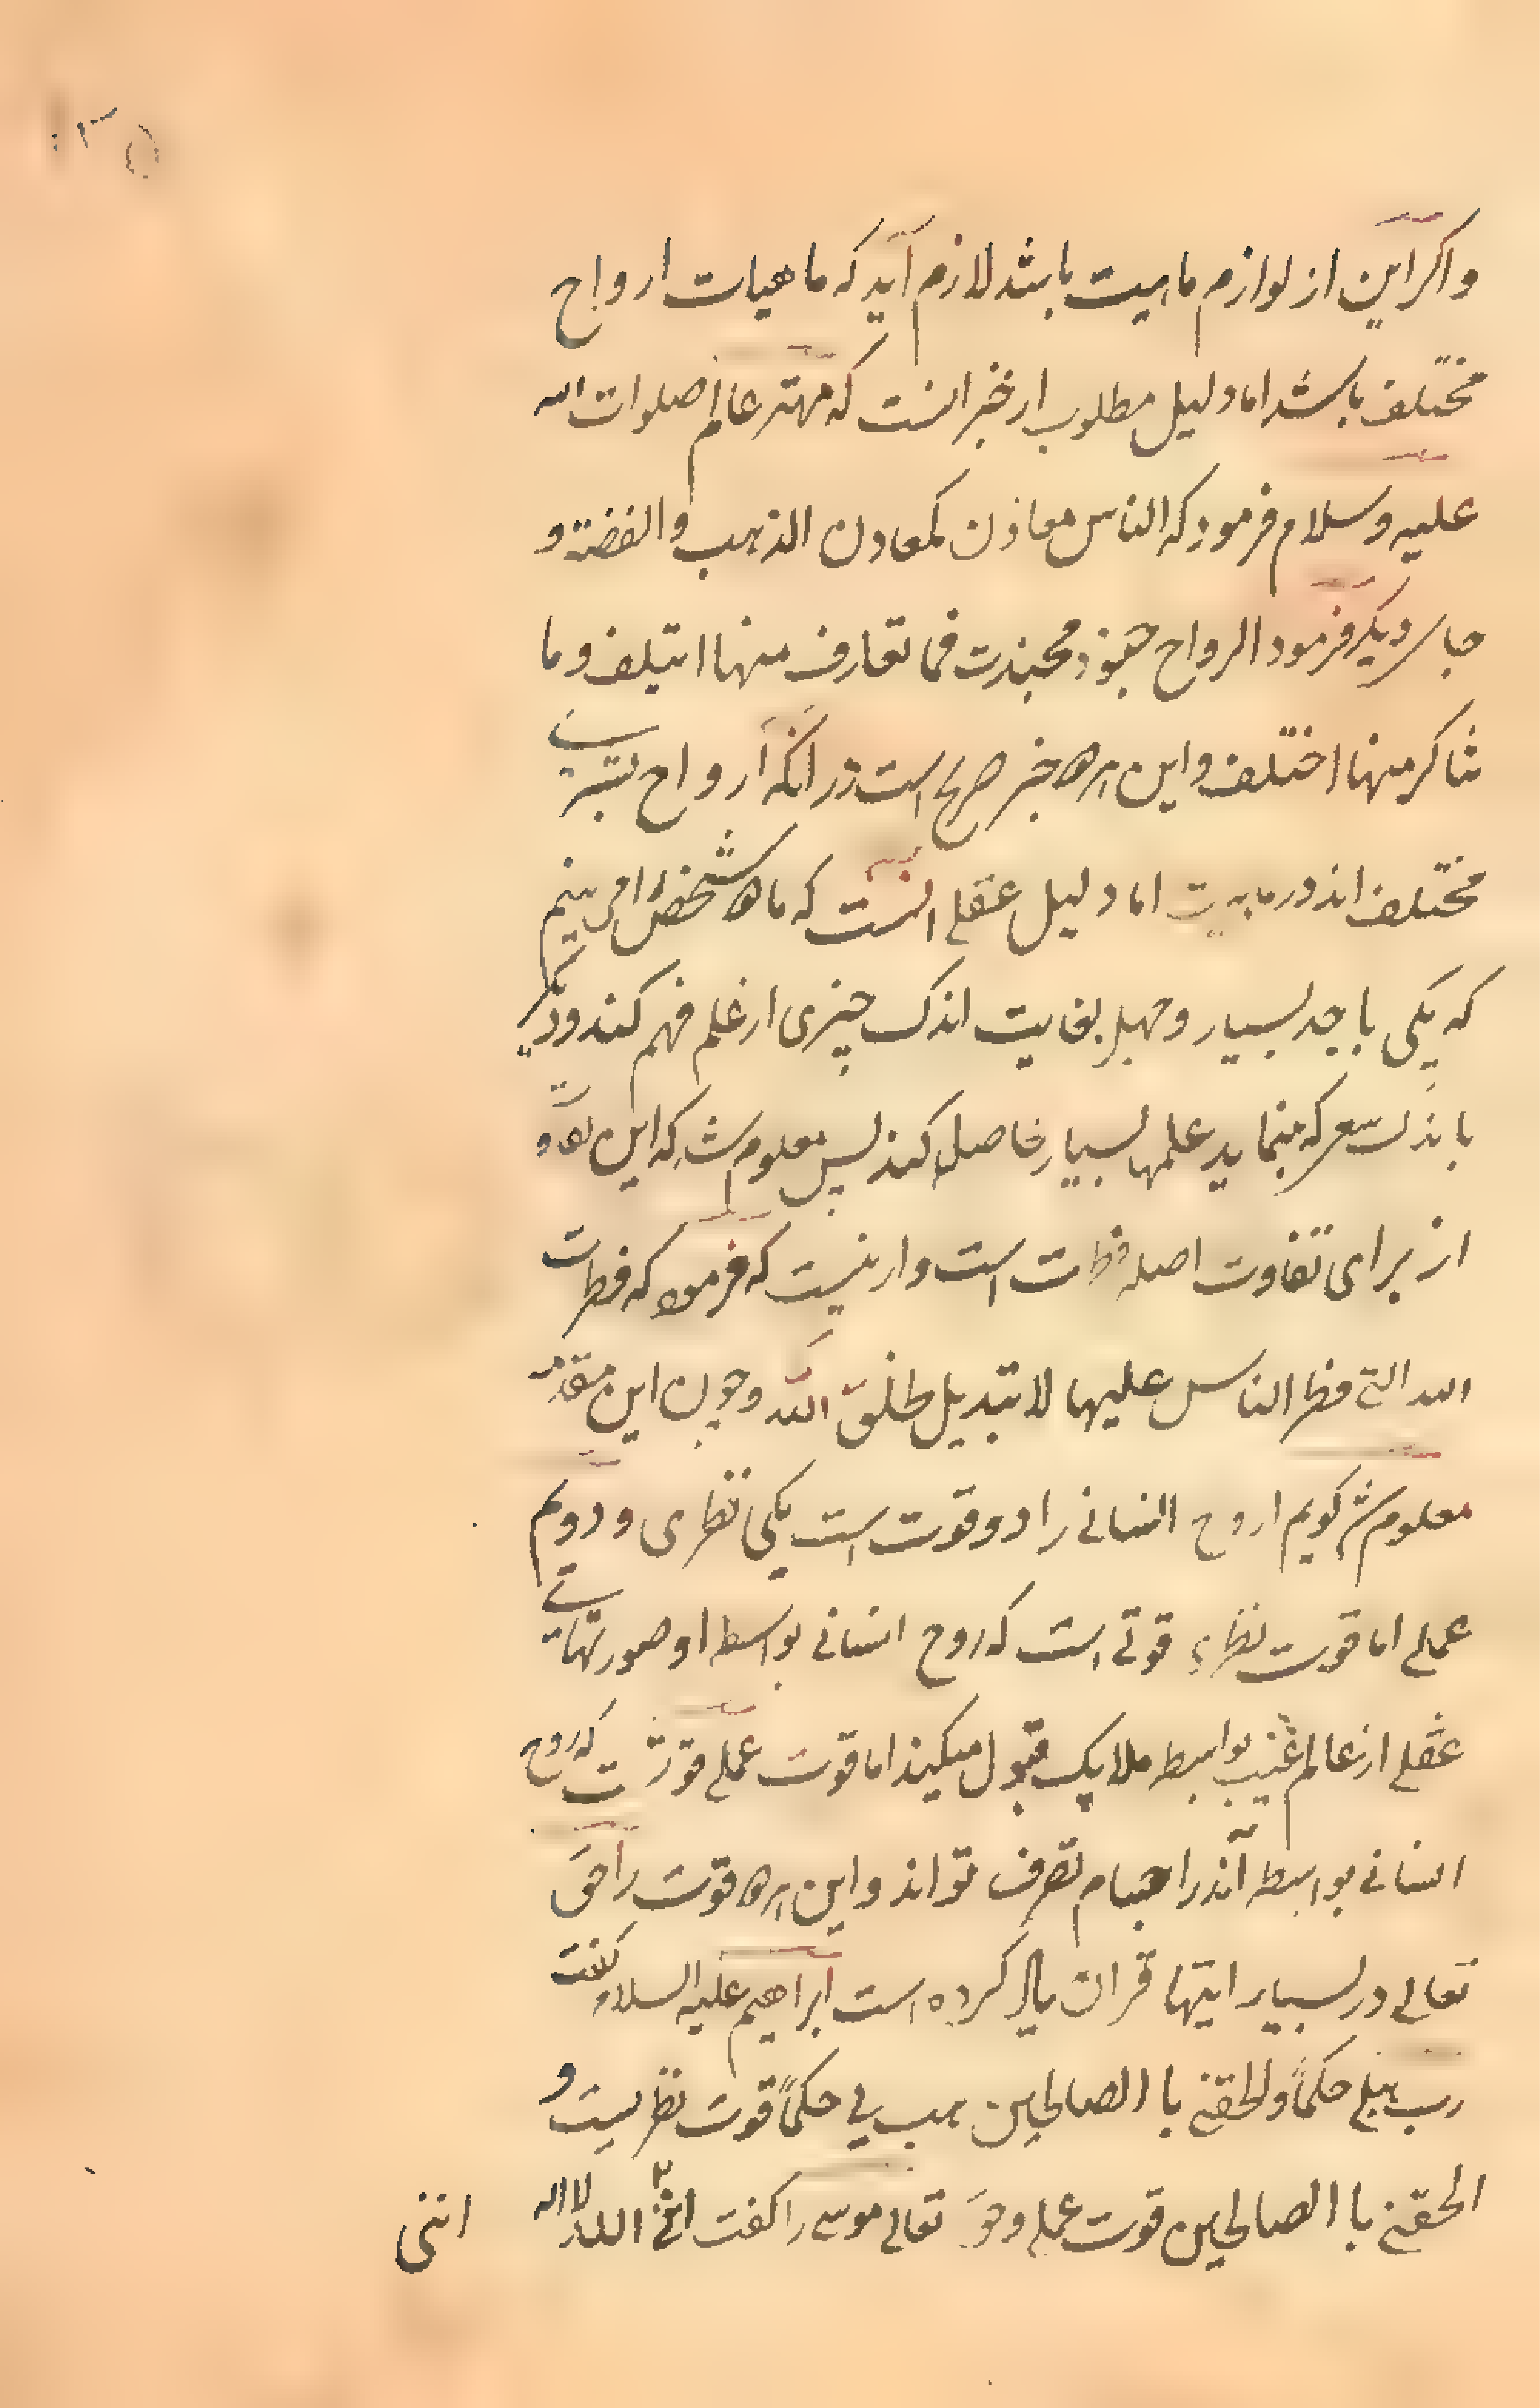 واكر اين از لوازم ماهيت باشد لازم آيد كه ماهيات ارواح
مختلف باشد اما دليل مطلوب از خبر انست كه مهتر عالم صلوات الله
عليه و سلام فرمود كه الناس معادن كمعادن الذهب والفضة و
جاى ديكر فرمود الرواح جنود مجندت فما تعارف منها ايتلف وما
تناكر منها اختلف و اين هر دو خبر صريح است در انكه ارواح بشرى
مختلف اند در ماهيت اما دليل عقلى انست كه ما دو شخص را مى بينم
كه يكى با جد بسيار و جهد بغايت اندك چيزى از علم فهم كند و ديكر
باندك سعى كه بنمايد علمها بسيار حاصل كند پس معلوم شد كه اين تفاوت
از براى تفاوت اصل فطرت است و از ينست كه فرمود كه فطرت
الله التى فطر الناس عليها لا تبديل لخلق الله و چون اين مقدمه
معلوم شد كويم ارواح انسانى را دو قوت است يكى نظرى و دويم
عملى اما قوت نظرى قوتى است كه روح انسانى بواسطه او صورتهاى
عقلى از عالم غيب بواسطه ملايك قبول ميكند اما قوت عملى قوتست كه روح
انسانى بواسطه آن در اجسام تصرف تواند و اين هر دو قوت را حق
تعالى در بسيار ايتها قران ياد كرده است ابراهيم عليه السلام كفت
رب هبلى حكماً ولحقنى با الصالحين هب لى حكماً قوت نظريست و
الحقنى با الصالحين قوت عملى و حق تعالى موسى را كفت اننى انا الله لا اله
اننى